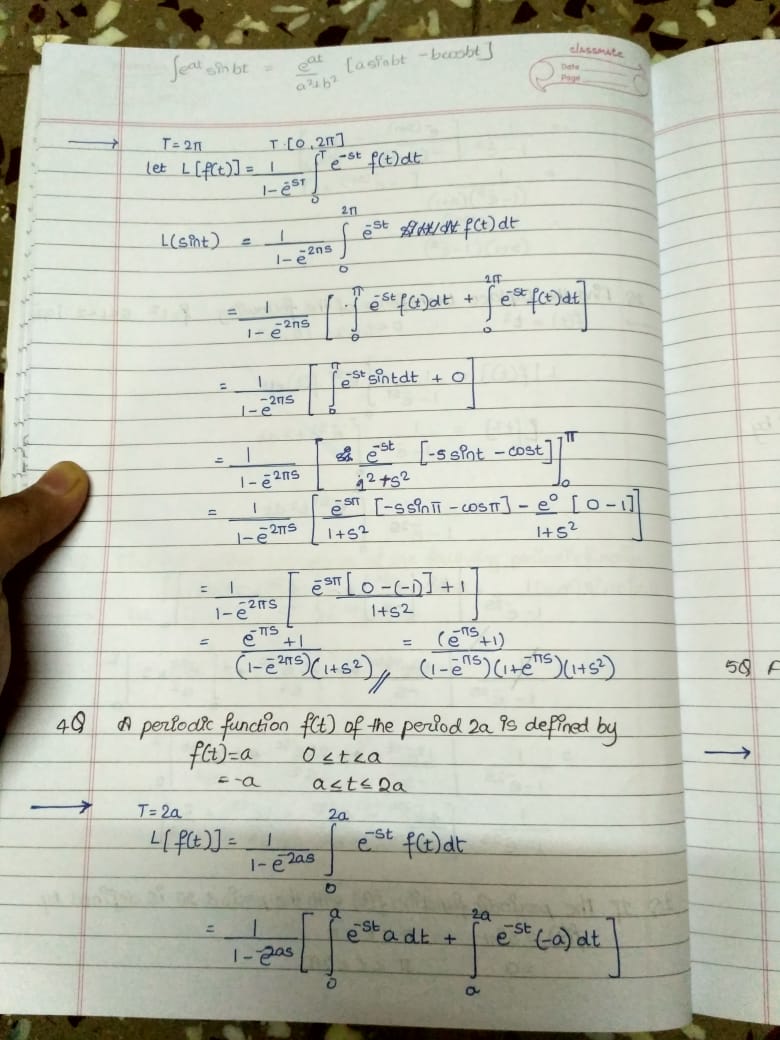 ∫e^at sinbt = e^at/(a²+b²) [asinbt - bcosbt]
classmate
Date
Page
→ T=2π T·[0,2π]
let L[f(t)] = 1/(1-e^-ST) ∫₀^T e^-st f(t)dt
L(sint) = 1/(1-e^-2πs) ∫₀^2π e^-st f(t)dt
= 1/(1-e^-2πs) [∫₀^π e^-st f(t)dt + ∫₀^2π e^-st f(t)dt]
= 1/(1-e^-2πs) [∫₀^π e^-st sintdt + 0]
= 1/(1-e^-2πs) [e^-st/(1²+s²) [-s sint - cost]]₀^π
= 1/(1-e^-2πs) [e^-sπ/(1+s²) [-s sinπ - cosπ] - e^0/(1+s²) [0-1]]
= 1/(1-e^-2πs) [(e^-sπ [0-(-1)] + 1)/(1+s²)]
= (e^-πs +1)/((1-e^-2πs)(1+s²)) // = (e^-πs +1)/((1-e^-πs)(1+e^-πs)(1+s²))
5Q
4Q A periodic function f(t) of the period 2a is defined by
f(t)=a 0≤t<a
=-a a≤t≤2a
→ T=2a
L[f(t)] = 1/(1-e^-2as) ∫₀^2a e^-st f(t)dt
= 1/(1-e^-2as) [∫₀^a e^-st a dt + ∫ₐ^2a e^-st (-a) dt]